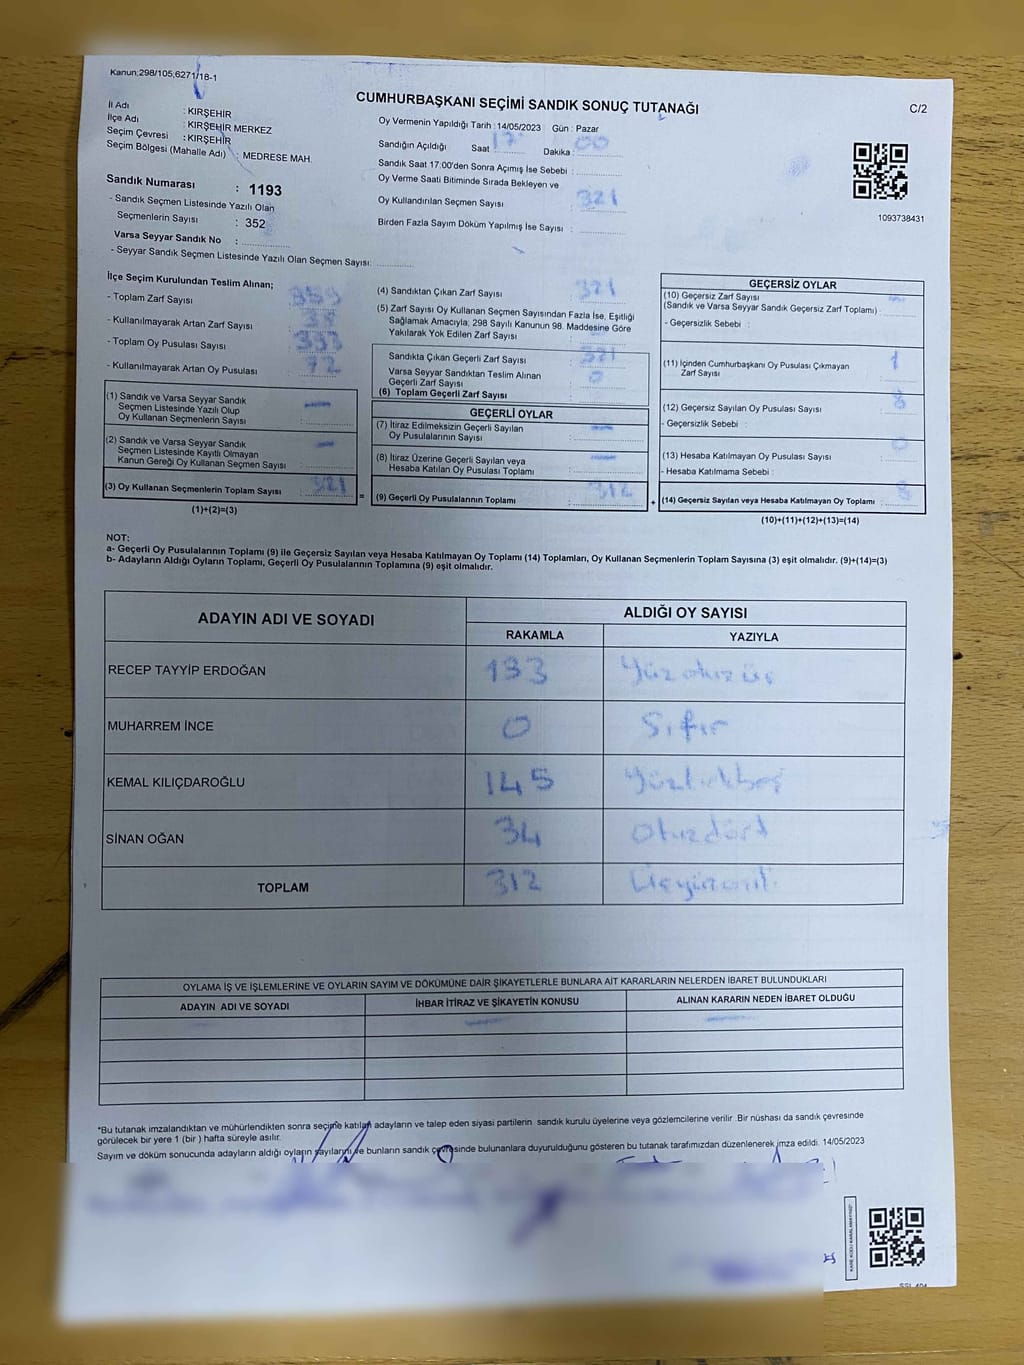 Kanun;298/105;6271/18-1
CUMHURBAŞKANI SEÇİMİ SANDIK SONUÇ TUTANAĞI
C/2
İl Adı : KIRŞEHİR
İlçe Adı : KIRŞEHİR MERKEZ
Seçim Çevresi : KIRŞEHİR
Seçim Bölgesi (Mahalle Adı) : MEDRESE MAH.
Sandık Numarası : 1193
- Sandık Seçmen Listesinde Yazılı Olan
Seçmenlerin Sayısı : 352
Varsa Seyyar Sandık No :
- Seyyar Sandık Seçmen Listesinde Yazılı Olan Seçmen Sayısı:
Oy Vermenin Yapıldığı Tarih :14/05/2023 Gün : Pazar
Sandığın Açıldığı Saat : 17 Dakika : 00
Sandık Saat 17:00'den Sonra Açımış İse Sebebi :
Oy Verme Saati Bitiminde Sırada Bekleyen ve
Oy Kullandırılan Seçmen Sayısı : 321
Birden Fazla Sayım Döküm Yapılmış İse Sayısı :
1093738431
İlçe Seçim Kurulundan Teslim Alınan;
- Toplam Zarf Sayısı :
- Kullanılmayarak Artan Zarf Sayısı :
- Toplam Oy Pusulası Sayısı :
- Kullanılmayarak Artan Oy Pusulası : 72
(1) Sandık ve Varsa Seyyar Sandık
Seçmen Listesinde Yazılı Olup
Oy Kullanan Seçmenlerin Sayısı : —
(2) Sandık ve Varsa Seyyar Sandık
Seçmen Listesinde Kayıtlı Olmayan
Kanun Gereği Oy Kullanan Seçmen Sayısı : —
(3) Oy Kullanan Seçmenlerin Toplam Sayısı : 321
(1)+(2)=(3)
=
(4) Sandıktan Çıkan Zarf Sayısı : 321
(5) Zarf Sayısı Oy Kullanan Seçmen Sayısından Fazla İse, Eşitliği
Sağlamak Amacıyla; 298 Sayılı Kanunun 98. Maddesine Göre
Yakılarak Yok Edilen Zarf Sayısı :
Sandıkta Çıkan Geçerli Zarf Sayısı : 321
Varsa Seyyar Sandıktan Teslim Alınan
Geçerli Zarf Sayısı : 0
(6) Toplam Geçerli Zarf Sayısı
GEÇERLİ OYLAR
(7) İtiraz Edilmeksizin Geçerli Sayılan
Oy Pusulalarının Sayısı : —
(8) İtiraz Üzerine Geçerli Sayılan veya
Hesaba Katılan Oy Pusulası Toplamı : —
(9) Geçerli Oy Pusulalarının Toplamı : 312
+
GEÇERSİZ OYLAR
(10) Geçersiz Zarf Sayısı : —
(Sandık ve Varsa Seyyar Sandık Geçersiz Zarf Toplamı)
- Geçersizlik Sebebi :
(11) İçinden Cumhurbaşkanı Oy Pusulası Çıkmayan : 1
Zarf Sayısı
(12) Geçersiz Sayılan Oy Pusulası Sayısı : 8
- Geçersizlik Sebebi :
(13) Hesaba Katılmayan Oy Pusulası Sayısı : 0
- Hesaba Katılmama Sebebi :
(14) Geçersiz Sayılan veya Hesaba Katılmayan Oy Toplamı :
(10)+(11)+(12)+(13)=(14)
NOT:
a- Geçerli Oy Pusulalarının Toplamı (9) ile Geçersiz Sayılan veya Hesaba Katılmayan Oy Toplamı (14) Toplamları, Oy Kullanan Seçmenlerin Toplam Sayısına (3) eşit olmalıdır. (9)+(14)=(3)
b- Adayların Aldığı Oyların Toplamı, Geçerli Oy Pusulalarının Toplamına (9) eşit olmalıdır.
ADAYIN ADI VE SOYADI ALDIĞI OY SAYISI
RAKAMLA YAZIYLA
RECEP TAYYİP ERDOĞAN 133 Yüzotuzüç
MUHARREM İNCE 0 Sıfır
KEMAL KILIÇDAROĞLU 145 Yüzkırkbeş
SİNAN OĞAN 34 Otuzdört
TOPLAM 312
OYLAMA İŞ VE İŞLEMLERİNE VE OYLARIN SAYIM VE DÖKÜMÜNE DAİR ŞİKAYETLERLE BUNLARA AİT KARARLARIN NELERDEN İBARET BULUNDUKLARI
ADAYIN ADI VE SOYADI İHBAR İTİRAZ VE ŞİKAYETİN KONUSU ALINAN KARARIN NEDEN İBARET OLDUĞU
*Bu tutanak imzalandıktan ve mühürlendikten sonra seçime katılan adayların ve talep eden siyasi partilerin sandık kurulu üyelerine veya gözlemcilerine verilir .Bir nüshası da sandık çevresinde
görülecek bir yere 1 (bir ) hafta süreyle asılır.
Sayım ve döküm sonucunda adayların aldığı oyların sayılarını ve bunların sandık çevresinde bulunanlara duyurulduğunu gösteren bu tutanak tarafımızdan düzenlenerek imza edildi. 14/05/2023